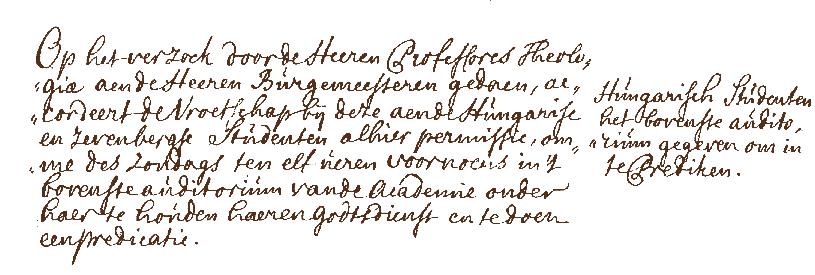 Op het versoek door de Heeren Professores Theolo,
,,giæ aen de Heeren Bürgemeesteren gedaen, ac,
,,cordeert de Vroetschap bij deze aen de Hüngarise
en Zevenbergse Stüdenten alhier permissie, om,
,,me des Zondags ten elf üeren voornoens in 't
bovenste aüditoriüm van de Academie onder
haer te hoüden haeren Godtsdienst en te doen
een predicatie.
Hüngarisch Stüdenten
het bovenste aüdito,
,,riüm gegeven om in
te Prediken.